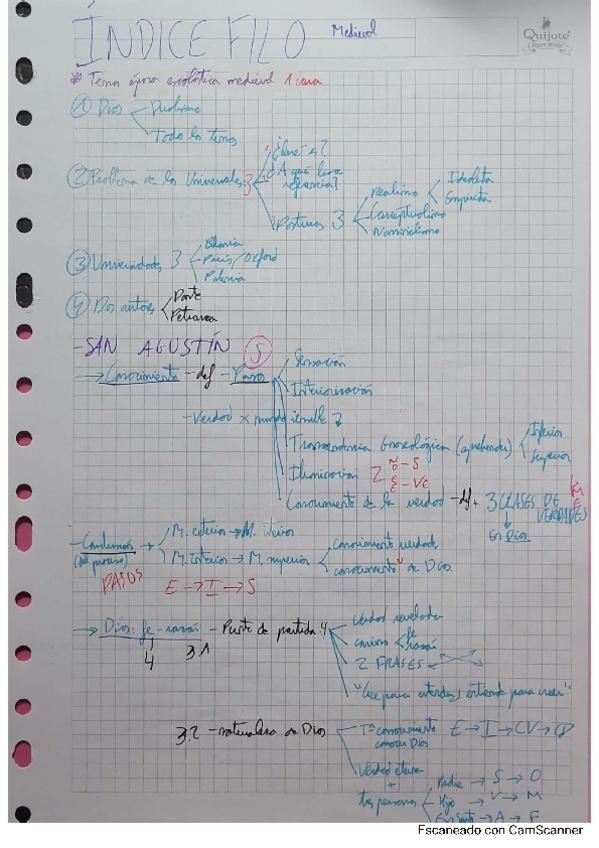 ÍNDICE FILO
Medieval
Quijote
* Temas época escolástica medieval 1 cara
① Dios
Dualismo
Todos los temas
② Problema de los Universales 3
¿Qué es?
¿A qué hace referencia?
Posturas 3
Realismo
Idealista
Empirista
Conceptualismo
Nominalismo
③ Universidades 3
Bolonia
París/Oxford
Palencia
④ Dos autores
Dante
Petrarca
- SAN AGUSTÍN 5
→ Conocimiento - def - Pasos
Sensación
Interiorización
- Verdad x mundo sensible
Trascendencia Gnoseológica (aprehender)
Inferior
Superior
Iluminación 2
Ñ - S
E - VE
Conocimiento de la verdad - def + 3 CLASES DE VERDADES
En Dios
- Conclusión (del proceso)
PASOS
M. exterior → M. interior
M. interior → M. superior
Conocimiento verdades
conocimiento de Dios.
E → I → S
→ Dios: fe - razón - Punto de partida 4
4
3.1
Verdad revelada
camino
fe
razón
2 FRASES
"Cree para entender, entiende para creer"
3.2 - naturaleza de Dios
Tª conocimiento
conocer Dios
E → I → CV → CD
Verdad eterna
+
tres personas
Padre → S → O
Hijo → V → M
Esp Santo → A → F
Escaneado con CamScanner